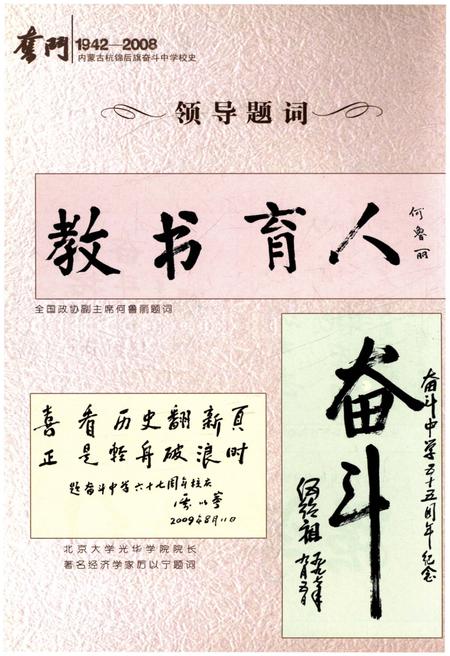 奮鬥 1942—2008
内蒙古杭锦后旗奋斗中学校史
领导题词
教书育人
何鲁丽
全国政协副主席何鲁丽题词
喜看历史翻新頁
正是轻舟破浪时
题奋斗中学六十七周年校庆
厉以宁
2009年8月10日
北京大学光华学院院长
著名经济学家厉以宁题词
奋斗
奋斗中学五十五周年纪念
伍绍祖
一九九七年
九月五日